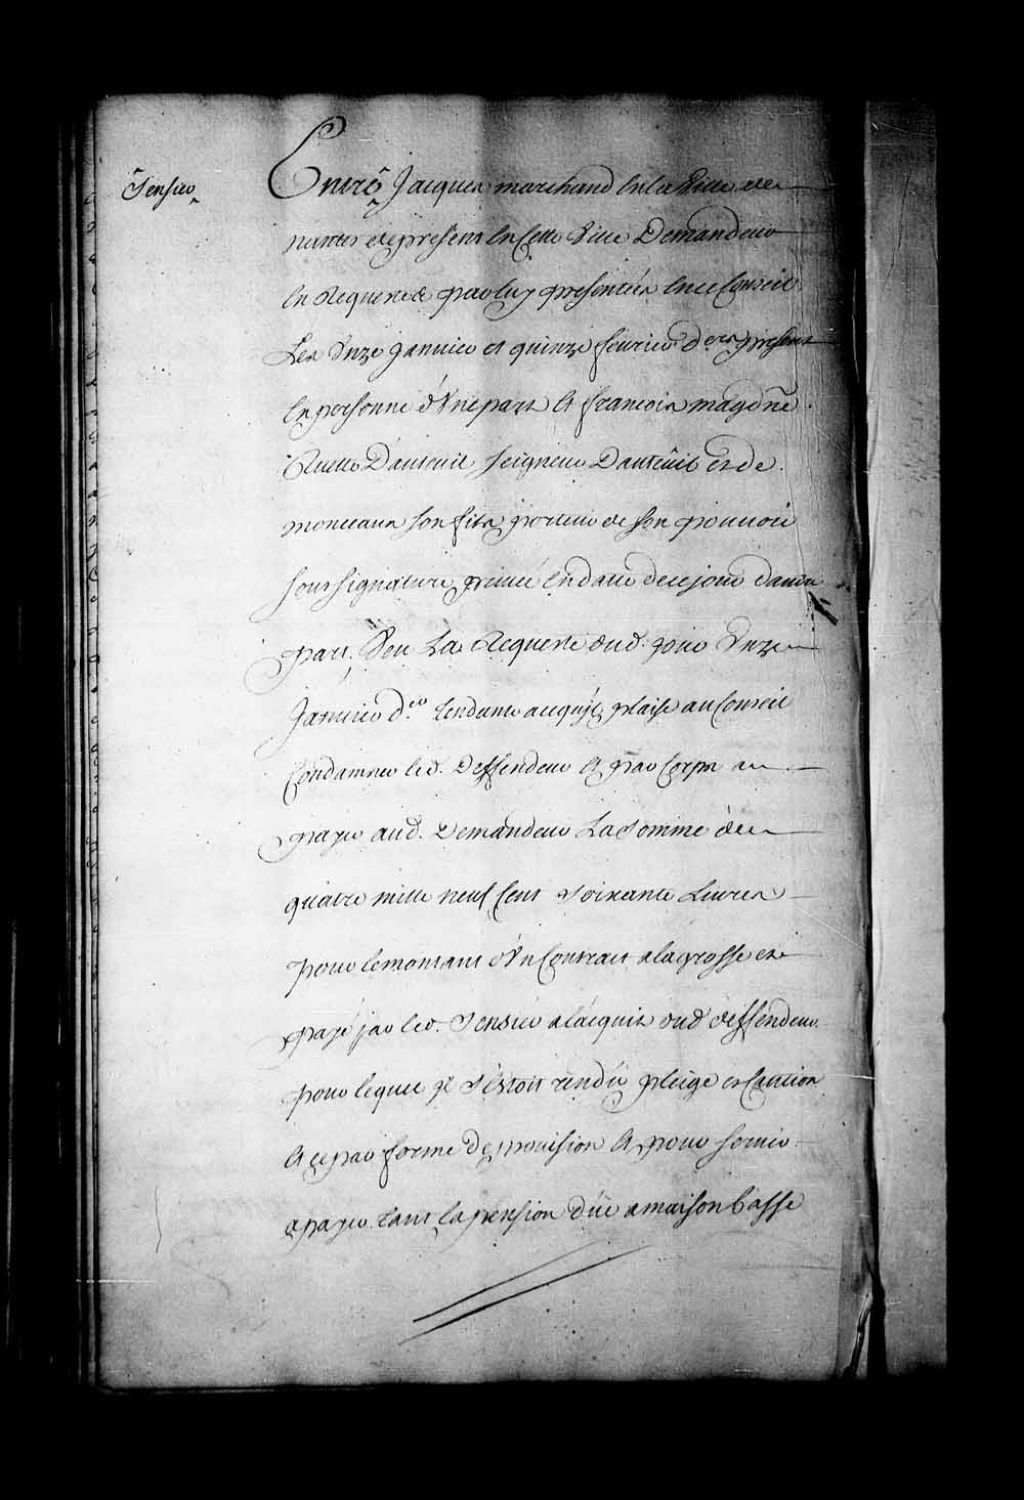 Sensier
Entre Jacques marchand en la Ville de
nantes depresent en Cette Ville Demandeur
en Requeste par luy presentée en ce Conseil
Les Unze Janvier et quinze fevrier der present
en personne d'Une part Et francois magdne
Ruette D'auteuil seigneur Dauteüil et de
monceaux son fils porteur de son pouvoir
sous signature privée en datte de ce jour dautre
part. Veu La Requeste dud. jour Unze
Janvier der. tendante acequ'il plaise au Conseil
Condamner led. Deffendeur Et par Corps a
payer aud. Demandeur La Somme de
quatre mille neuf Cent Soixante Livres
pour le montant d'Un Contrait a la grosse et
payé par led. Sensier a l'acquit dud deffendeur
pour lequel il S'estoit rendu pleige et Caution
Et ce par forme de provision Et pour servir
a payer tant la pension düe a maison basse